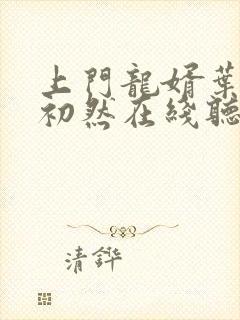 上門龍婿葉
初然在綫聽
清鏵